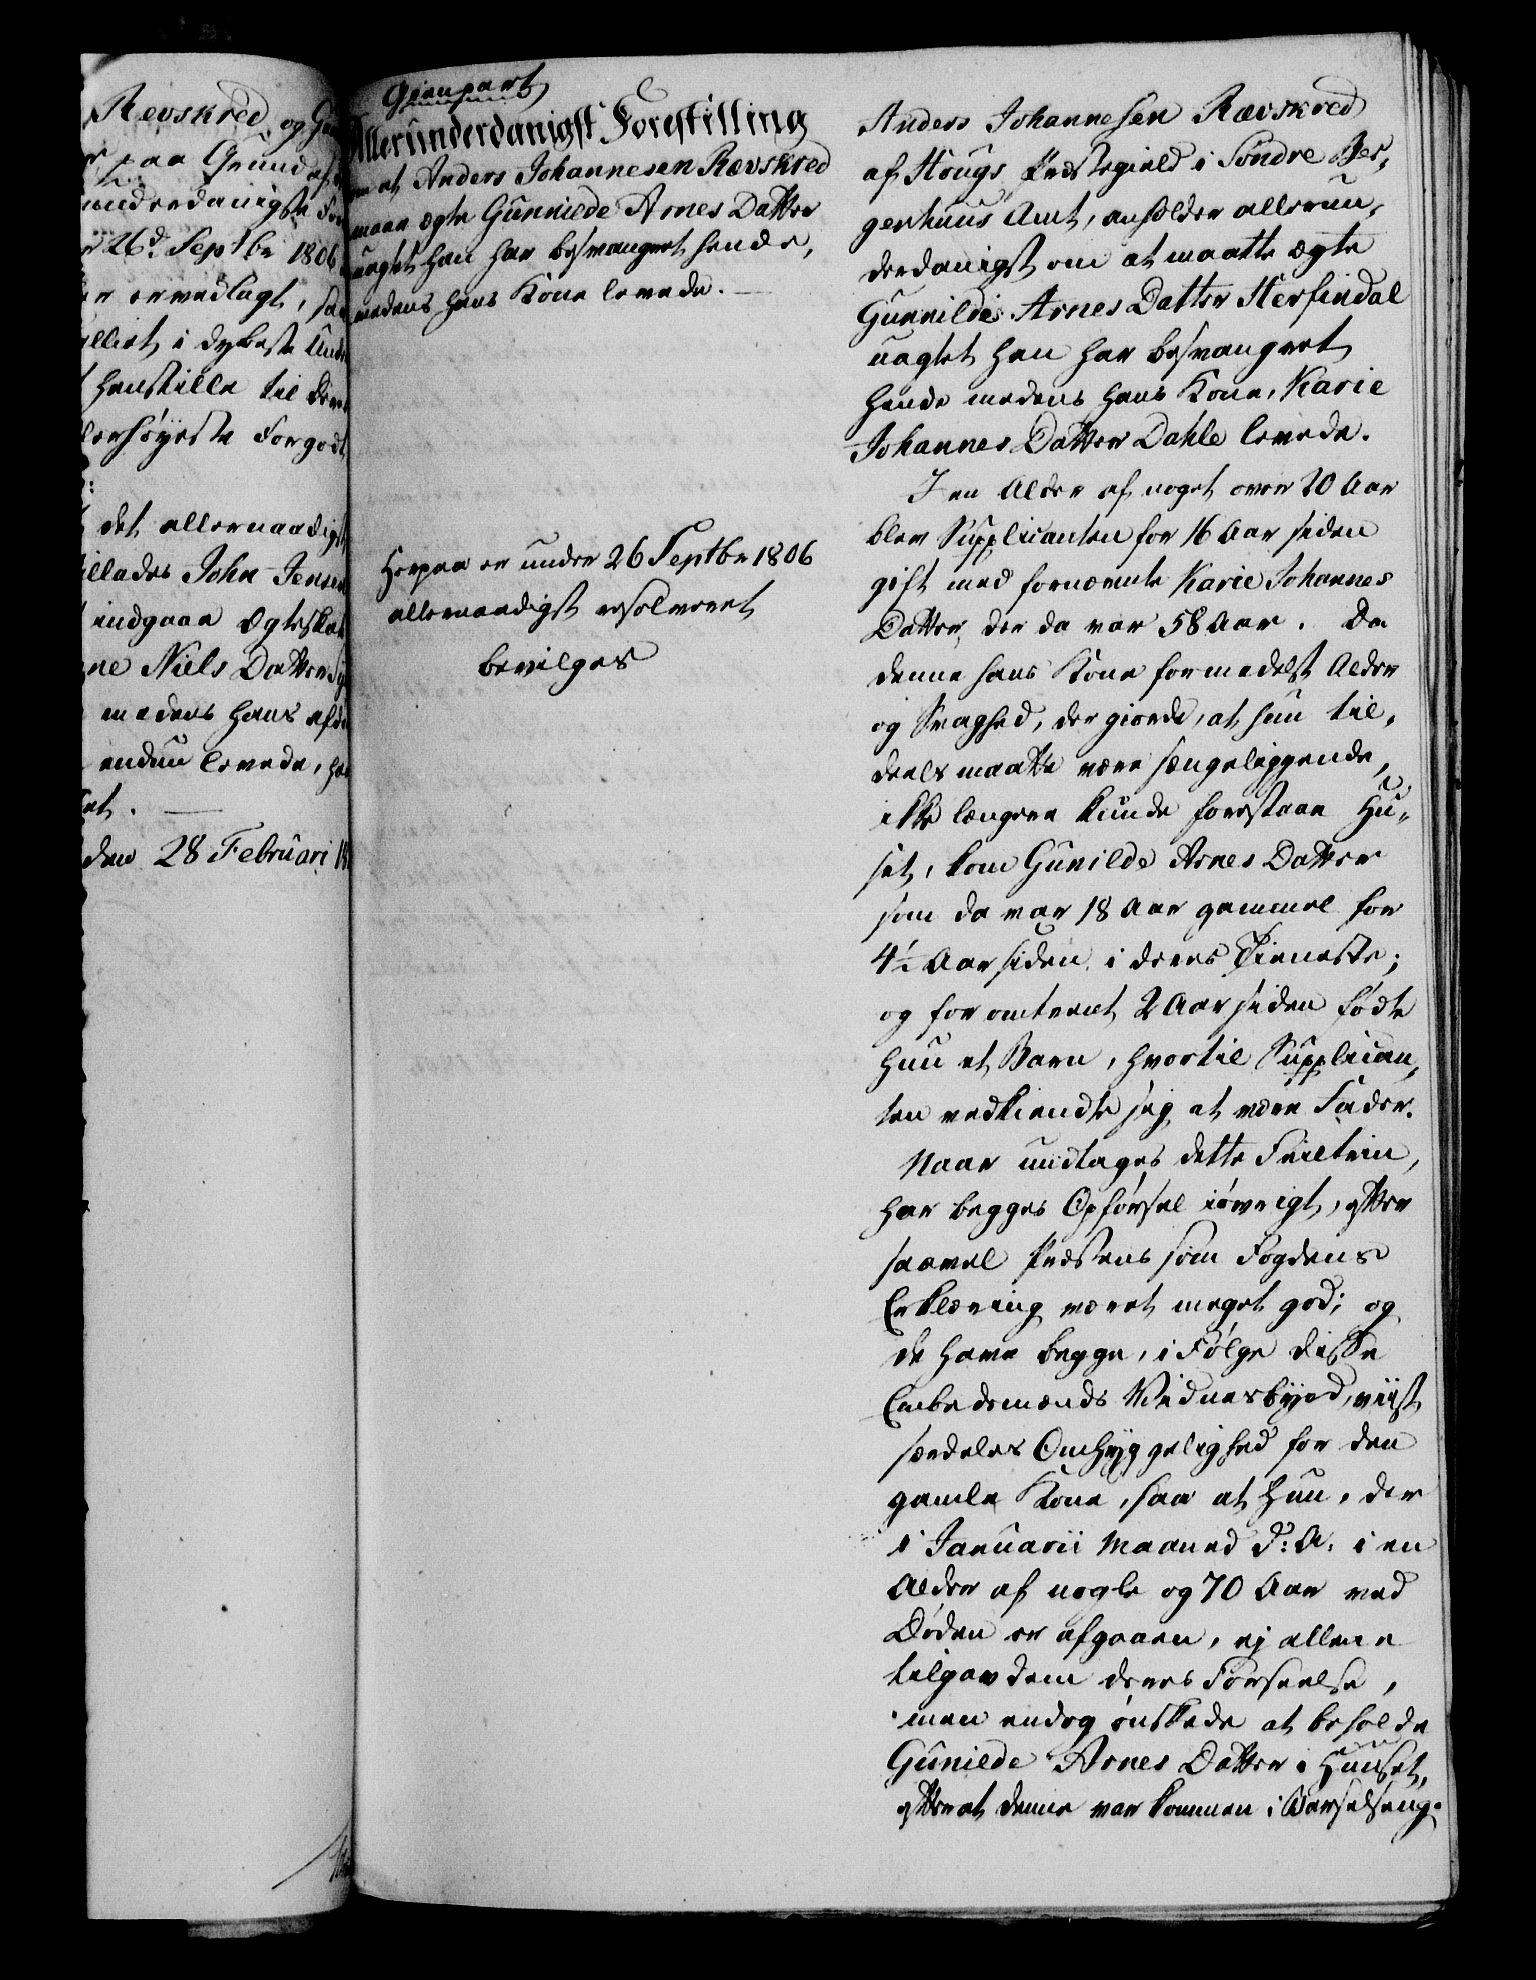 Revskred og
paa Grund af
underdanigste For
26d Septbr 1806
er vedlagt, saa
i dybeste Unde
henstille til
lerhöyeste Forgodt
det allernaadigst
illades John Jensen
indgaae Ægteskab
ne Niels Datter
medens hans afdö
endnu levede,
et. —
den 28 Februari
Gienpart
Allerunderdanigst Forestilling
om at Anders Johannesen Rævskred
maae ægte Gunnilde Arnes Datter
uagtet han har besvangret hende,
medens hans Kone levede. —
Herpaa er under 26 Septbr 1806
allernaadigst resolveret
bevilges
Anders Johannesen Rævskred
af Hougs Præstegield i Söndre Ber,
genhuus Amt, anholder allerun,
derdanigst om at maatte ægte
Gunnilde Arnes Datter Herfindal
uagtet han har besvangret
hende medens hans Kone, Karie
Johannes Datter Dahle levede.
I en Alder af noget over 20 Aar
blev Supplicanten for 16 Aar siden
gift med fornævnte Karie Johannes
Datter, der da var 58 Aar. Da
denne hans Kone formedelst Alder
og Svaghed, der giorde, at hun til,
deels maatte være sængeliggende,
ikke længere kunde forestaae Hu,
set, kom Gunilde Arnes Datter
som da var 18 Aar gammel for
4½ Aar siden i deres Tieneste;
og for omtrent 2 Aar siden födte
hun et Barn, hvortil Supplican,
ten vedkiendte sig at være Fader.
Naar undtages dette Feiltrin,
har begges Opförsel iövrigt, efter
saavel Præstens som Fogdens
Erklæring været meget god; og
de have begge, i Fölge disse
Embedsmænds Vidnesbyrd, viist
særdeles Omhyggelighed for den
gamle Kone, saa at hun, der
i Januarii Maaned d: A: i en
Alder af nogle og 70 Aar ved
Döden er afgaaen, ej allene
tilgav dem deres Forseelse,
men endog önskede at beholde
Gunilde Arnes Datter i Huuset,
efterat denne var kommen i Barselseng.